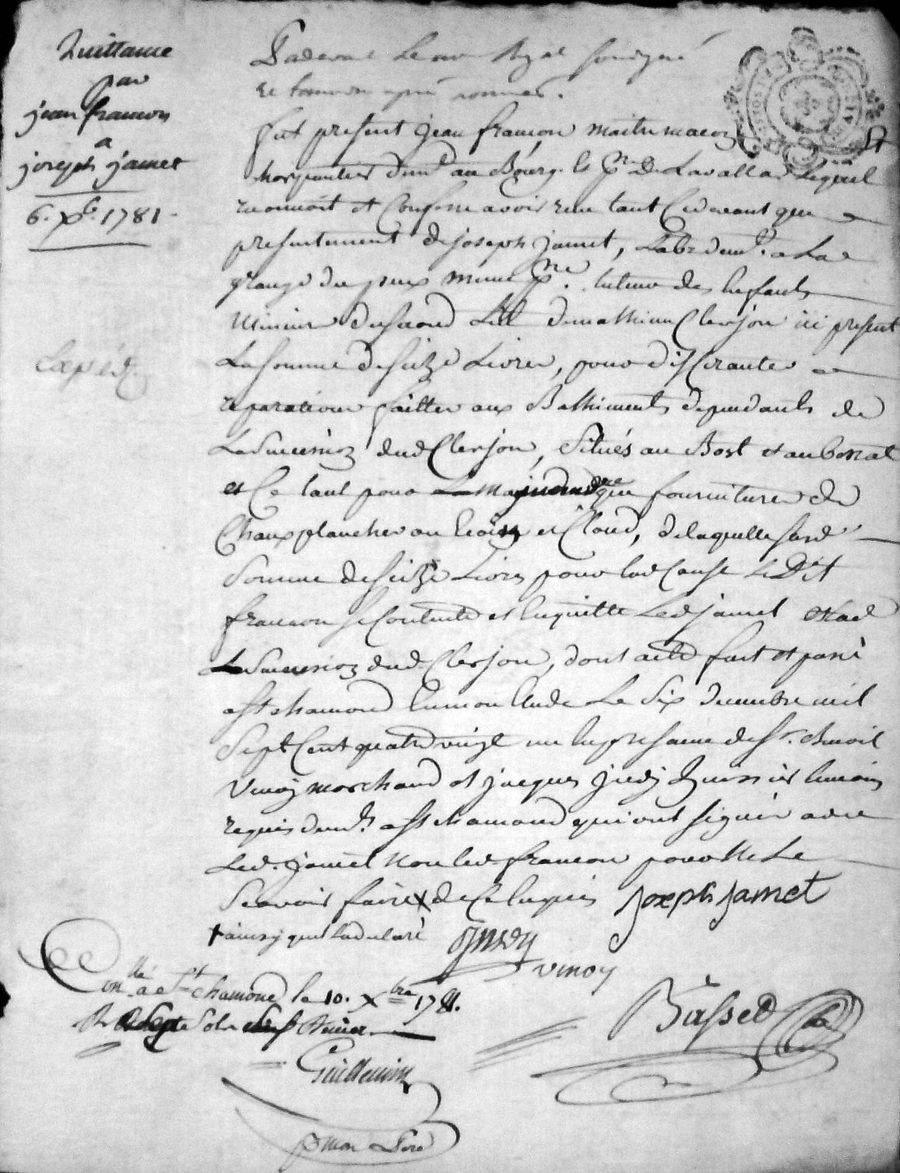 Quittance
par
jean françon
a
joseph jamet
6. Xbre 1781.
Expédié.
Pardevant Le no.re Royal soussigné
et temoins après nommés.
fut present jean françon maitre maçon et
charpentier dem.t au Bourg & p.sse De Lavalla Lequel
reconnoit et Confesse avoir reçu tant Cidevant que
presentement de joseph jamet, Lab.r dem.t a La
grange du p.sse tuteur des Enfants
mineurs du second Lit de mathieu Clerjon ici present
La somme de seize Livres, pour differantes
reparations faittes aux Battiments dependants de
La Succession dud Clerjon, Situés au Bost et au
et Ce tant pour main d'œuvre que fourniture de
Chaux plancher ou et Cloud, de laquelle susd
Somme de seize Livres pour lad Cause Le Dit
françon se Contente et En quitte Led jamet et lad
Succession dud Clerjon, dont acte fait et passé
a St chamond En mon Etude Le Six decembre mil
Sept Cent quatre vingt un En presence de Sr. Benoit
Vinoy marchand et jacques huissier temoins
requis dem.ts a St chamond qui ont signés avec
Led. jamet non led françon pour ne Le
Scavoir faire X de Ce Enquis Joseph Jamet
+ ainsy qu'il a declaré
vinoy
Con.llé a St chamond le 10. Xbre 1781.
R. Sept Sols Denier.
Basset
Guillemin